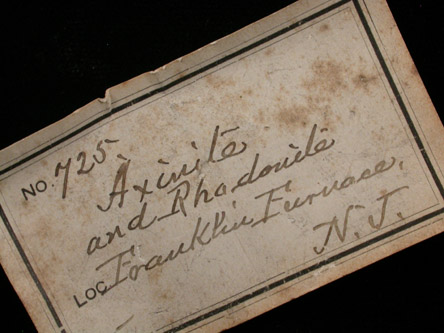 NO. 725
Axinite
and Rhodonite
LOC. Franklin Furnace,
N. J.